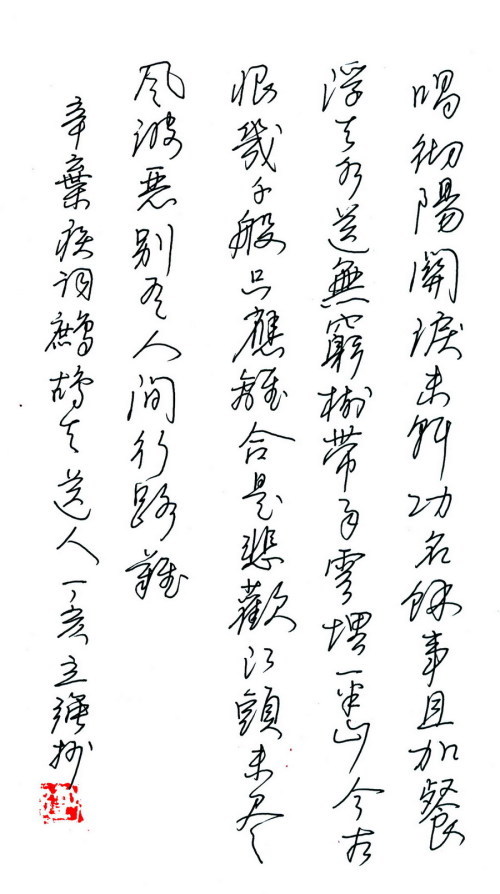 唱彻陽關淚未乾功名餘事且加餐
浮天水送無窮樹帶雨雲埋一半山今古
恨幾千般只應離合是悲歡江頭未是
风波惡别有人間行路難
辛棄疾词鷓鴣天送人丁亥立强抄